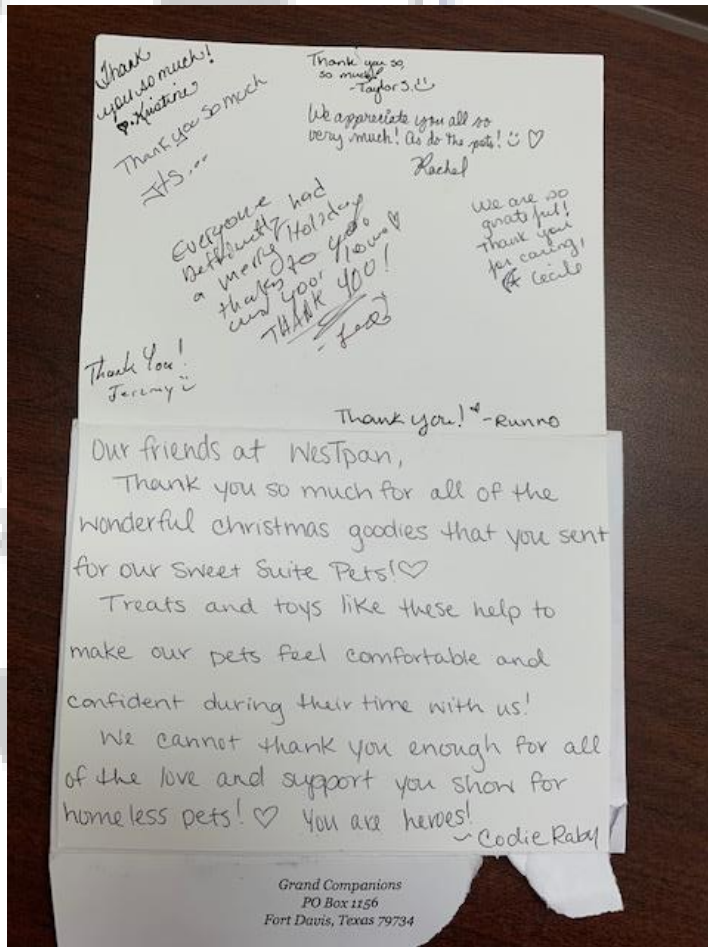 Thank
you so much!
♡-Kristine
Thank you so much
Thank you so,
so much!
-Taylor S. ☺
We appreciate you all so
very much! As do the pets! ☺ ♡
Rachel
Everyone
Deffinatly had
a merry Holiday
thanks to you
and your love ♡
THANK YOU!
We are so
grateful!
Thank you
for caring,
Cecile
Thank You!
Jeremy ☺
Thank you! ♥ -Runno
Our friends at WesTpan,
Thank you so much for all of the
wonderful christmas goodies that you sent
for our Sweet Suite Pets! ♡
Treats and toys like these help to
make our pets feel comfortable and
confident during their time with us!
We cannot thank you enough for all
of the love and support you show for
homeless pets! ♡ You are heroes!
~ Codie Raby
Grand Companions
PO Box 1156
Fort Davis, Texas 79734